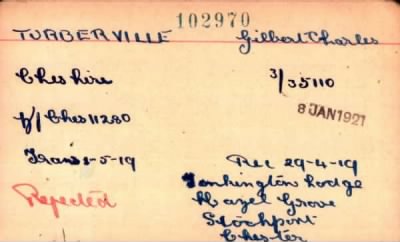 102970
TURBERVILLE Gilbert Charles
Cheshire 3/35110
b/Ches 11280
8 JAN 1921
Trans 1-5-19 Rec 29-4-19
Rejected Torkington Lodge
Hazel Grove
Stockport
Chester